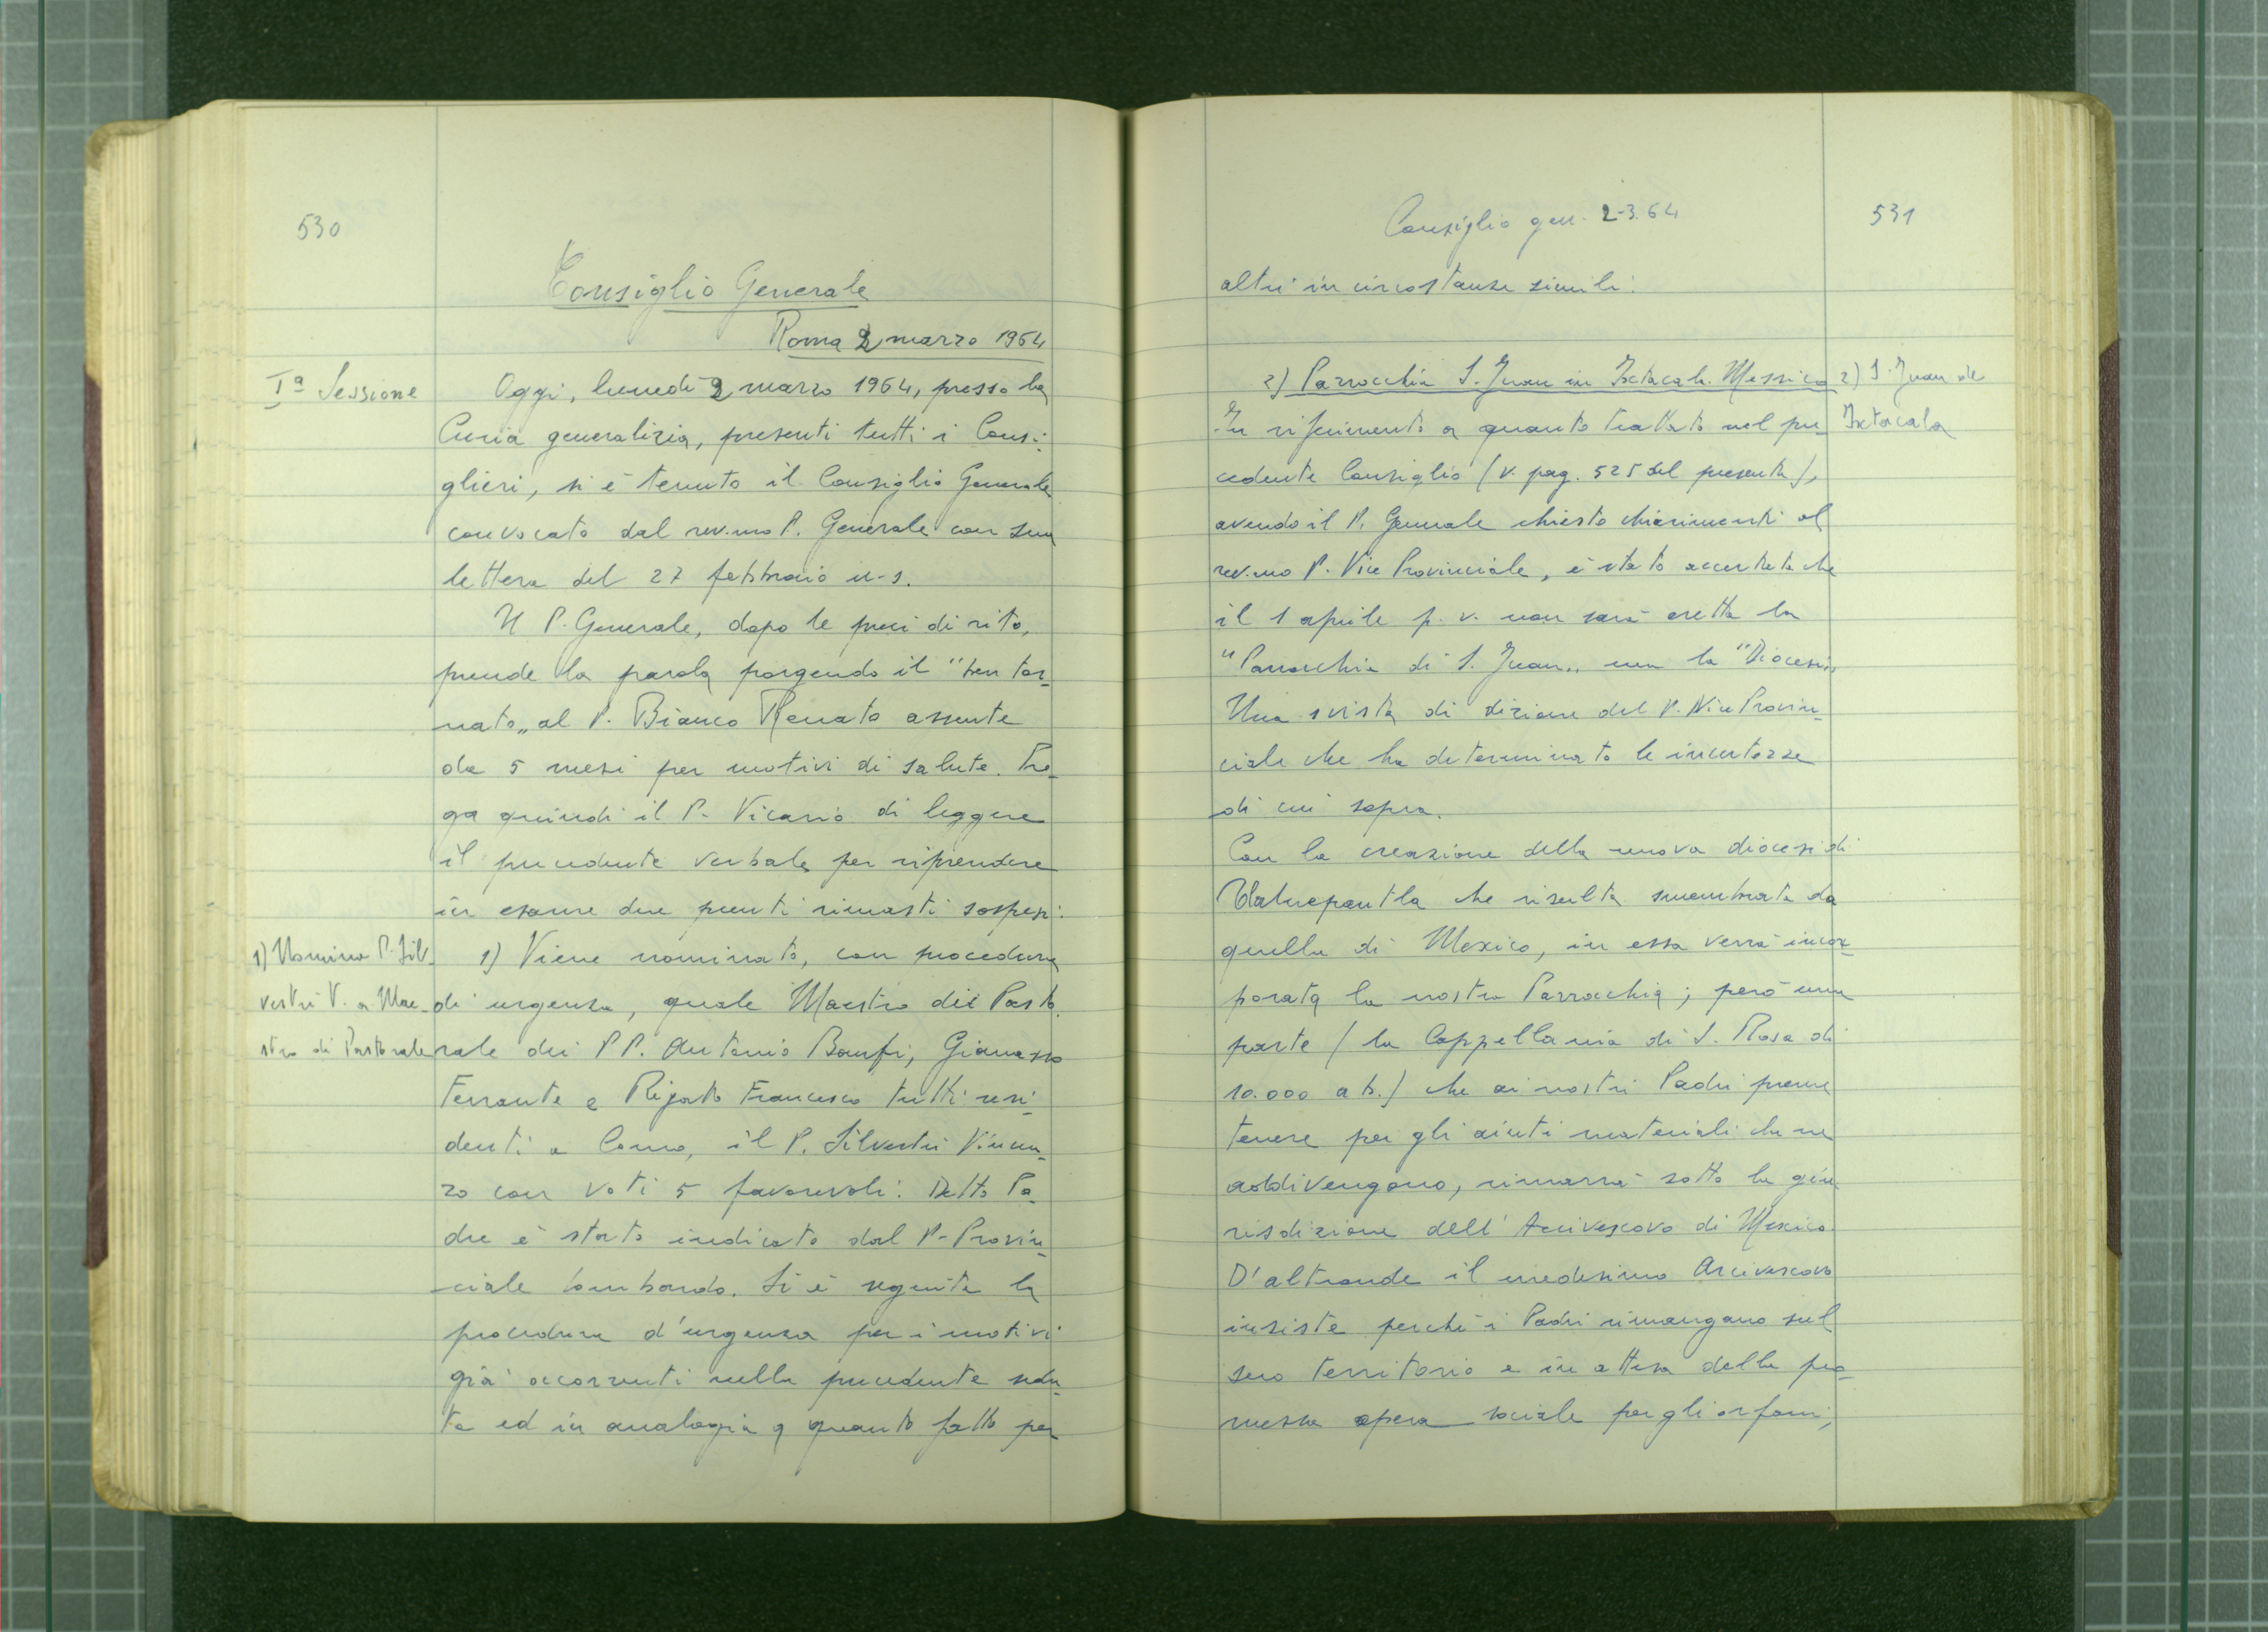 530
Consiglio Generale
Roma 2 marzo 1964
Iª Sessione
Oggi, lunedì 2 marzo 1964, presso la
Curia generalizia, presenti tutti i Consi-
glieri, si è tenuto il Consiglio Generale
convocato dal rev.mo P. Generale con sua
lettera del 27 febbraio u.s.
Il P. Generale, dopo le preci di rito,
prende la parola porgendo il "ben tor-
nato„ al P. Bianco Renato assente
da 5 mesi per motivi di salute. Pre-
ga quindi il P. Vicario di leggere
il precedente verbale per riprendere
in esame due punti rimasti sospesi.
1) Nomina P. Sil-
vestri V. a Mae-
stro di Pastorale
1) Viene nominato, con procedura
di urgenza, quale Maestro di Pasto
rale dei PP. Antonio Banfi, Gianasso
Ferrante e Rigato Francesco tutti resi-
denti a Como, il P. Silvestri Vincen-
zo con voti 5 favorevoli. Detto Pa-
dre è stato indicato dal P. Provin-
ciale lombardo. Si è seguita la
procedura d'urgenza per i motivi
già occorrenti nella precedente sedu-
ta ed in analogia a quanto fatto per
Consiglio gen. 2-3.64
531
altri in circostanze simili.
2) Parrocchia S. Juan in Ixtacala. Messico
2) S. Juan de
Ixtacala
In riferimento a quanto trattato nel pre-
cedente Consiglio (v. pag. 525 del presente),
avendo il P. Generale chiesto chiarimenti al
rev.mo P. Vice Provinciale, è stato accertato che
il 1 aprile p. v. non sarà eretta la
"Parrocchia di S. Juan„ ma la "Diocesi„
Una svista di dizione del P. Vice Provin-
ciale che ha determinato le incertezze
di cui sopra.
Con la creazione della nuova diocesi di
Tlalnepantla che risulta smembrata da
quella di Mexico, in essa verrà incor-
porata la nostra Parrocchia; però una
parte (la Cappellania di S. Rosa di
10.000 ab.) che ai nostri Padri preme
tenere per gli aiuti materiali che ne
addivengono, rimarrà sotto la giu
risdizione dell'Arcivescovo di Mexico
D'altronde il medesimo Arcivescovo
insiste perché i Padri rimangano sul
suo territorio e in attesa della pro-
messa opera sociale per gli orfani,